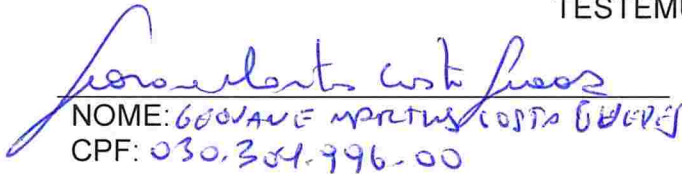 TESTEMU
NOME: GEOVANE MARTINS COSTA GUEDES
CPF: 030.301.996-00